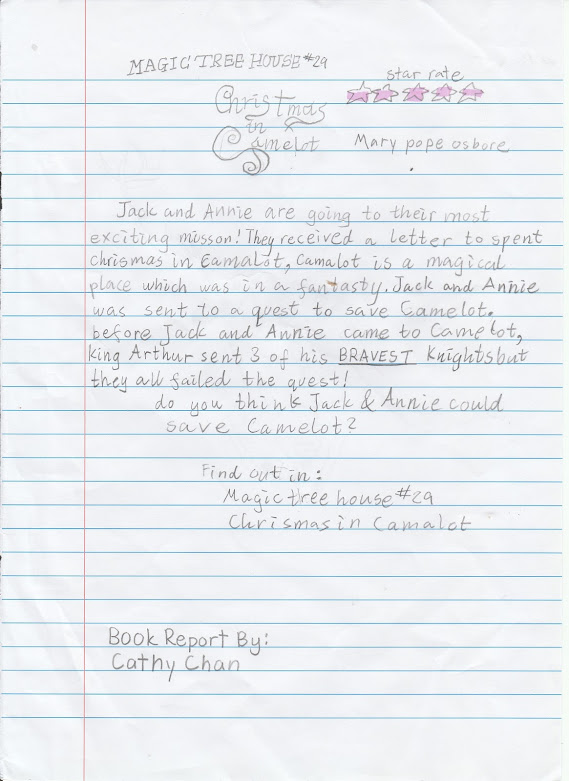 MAGIC TREE HOUSE #29
star rate
Christmas
in
Camelot
Mary pope osbore
Jack and Annie are going to their most
exciting musson! They received a letter to spent
chrismas in Camalot, Camalot is a magical
place which was in a fantasty. Jack and Annie
was sent to a quest to save Camelot.
before Jack and Annie came to Camelot,
king Arthur sent 3 of his BRAVEST Knights but
they all failed the quest!
do you think Jack & Annie could
save Camelot?
Find out in:
Magic tree house #29
Chrismas in Camalot
Book Report By:
Cathy Chan